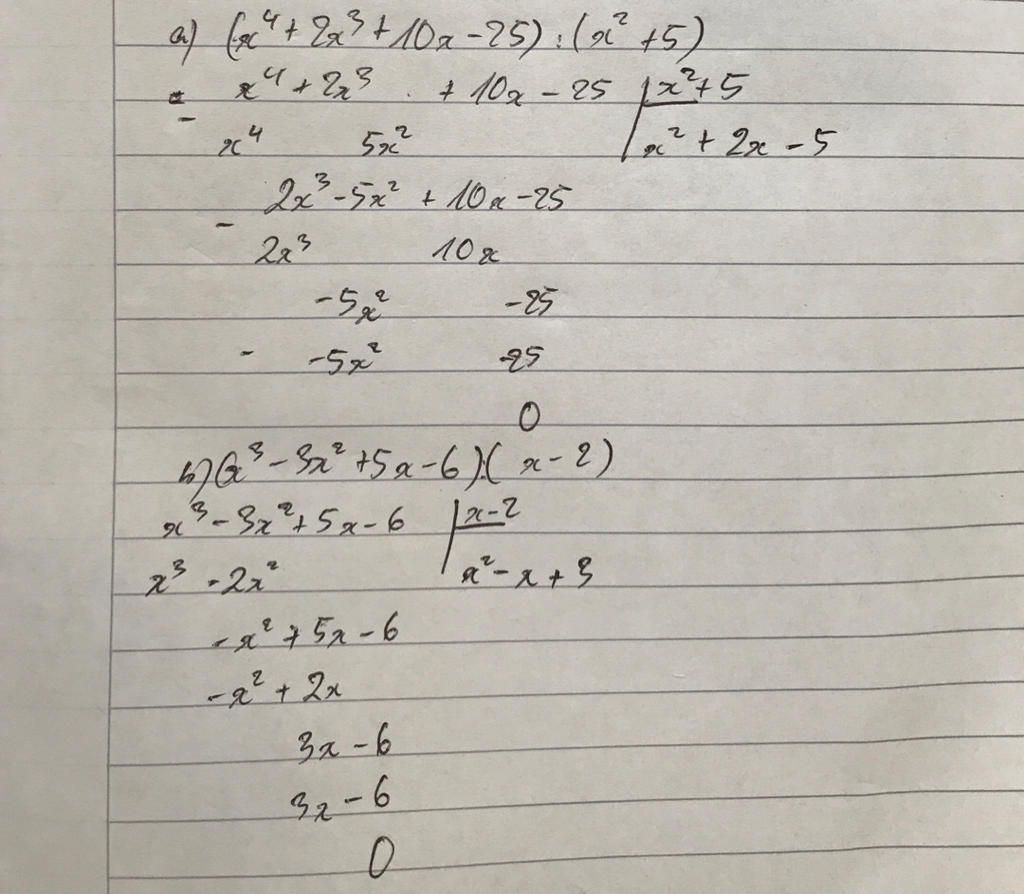 a) (x⁴ + 2x³ + 10x - 25) : (x² + 5)
- x⁴ + 2x³ + 10x - 25 | x² + 5
x⁴ 5x² | x² + 2x - 5
- 2x³ - 5x² + 10x - 25
2x³ 10x
-5x² -25
- -5x² -25
0
b) (x³ - 3x² + 5x - 6) : (x - 2)
x³ - 3x² + 5x - 6 | x - 2
x³ - 2x² | x² - x + 3
-x² + 5x - 6
-x² + 2x
3x - 6
3x - 6
0